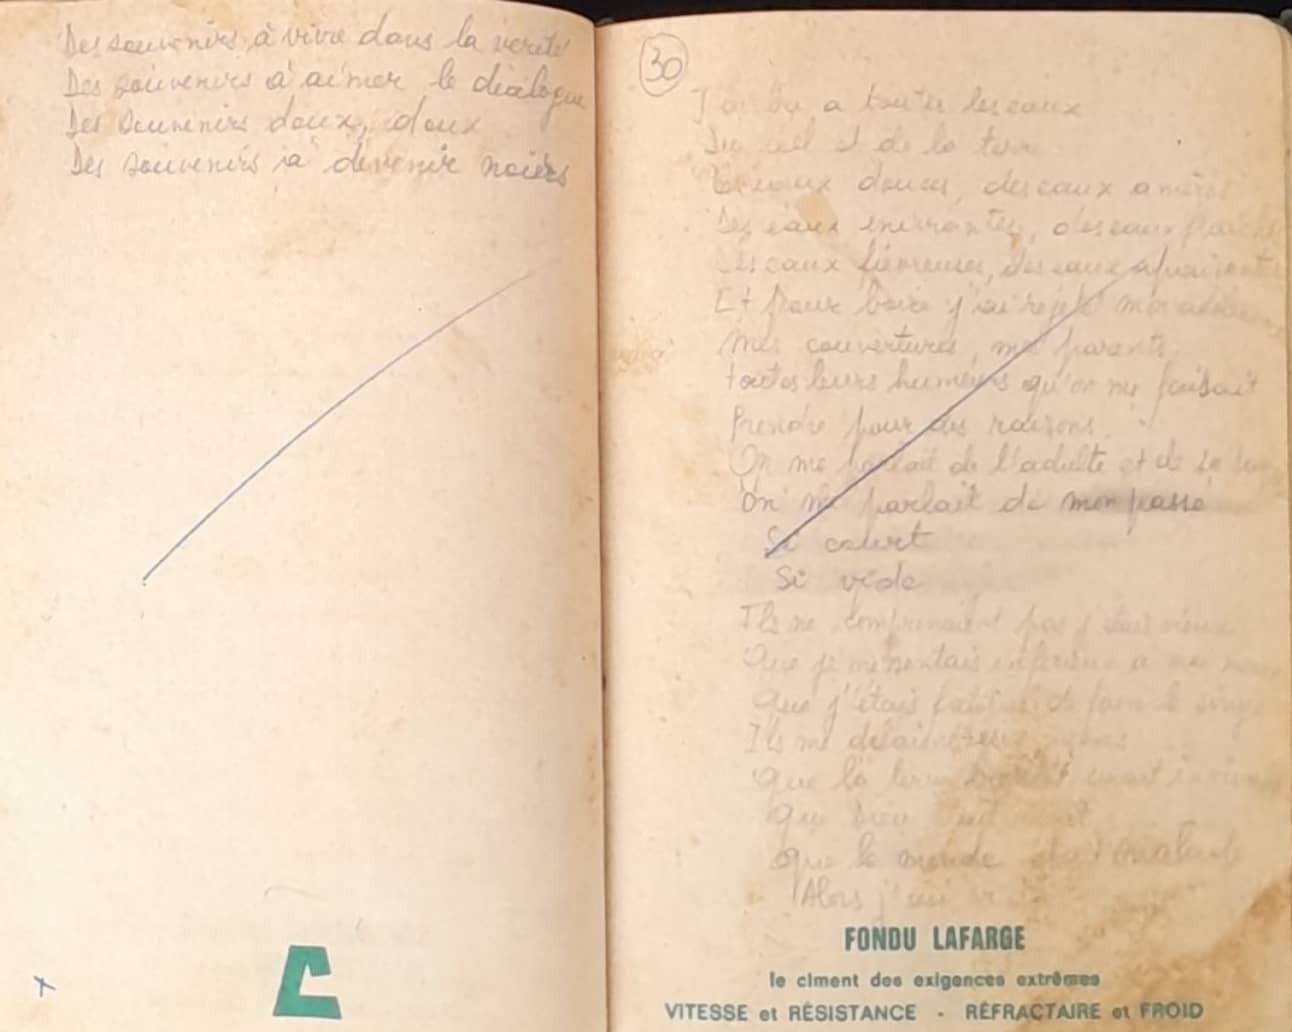 Des souvenirs à vivre dans la verité
Des souvenirs à aimer le dialogue
Des souvenirs doux, doux
Des souvenirs à devenir noires
30
J'ai bu a toutes les eaux
Du ciel et de la terre
Des eaux douces, des eaux amères
Des eaux enivrantes, des eaux
Des eaux fiévreuses, des eaux apaisantes
Et pour boire j'ai rejeté mon
Mes couvertures, mes parents
toutes leurs humeurs qu'on me faisait
Prendre pour des raisons.
On me parlait de l'adulte et de
On me parlait de mon passé
Si court
Si vide
Ils ne comprenaient pas
Que je me sentais inférieur a
Que j'étais de faire le singe
Ils me
Que la terre
Que Dieu
Que le monde
Alors j'ai
FONDU LAFARGE
le ciment des exigences extrêmes
VITESSE et RÉSISTANCE - RÉFRACTAIRE et FROID